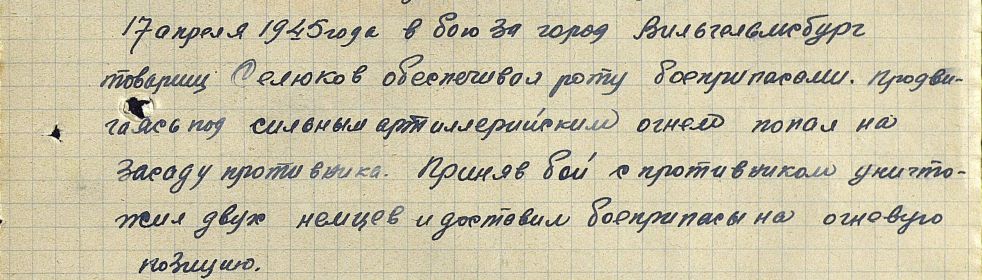 17 апреля 1945 года в бою за город Вильгельмсбург
товарищ Селюков обеспечивал роту боеприпасами. Продви-
гаясь под сильным артиллерийским огнем попал на
засаду противника. Приняв бой с противником уничто-
жил двух немцев и доставил боеприпасы на огневую
позицию.